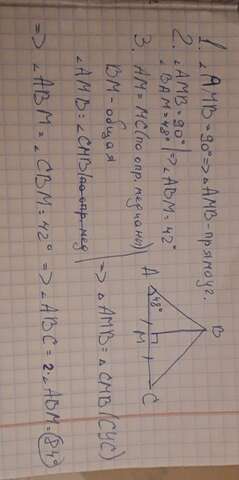 1. ∠AMB=90° => △AMB-прямоуг.
2. ∠AMB=90°
∠BAM=48° | => ∠ABM=42°
3. AM=MC (по опр. медианы)
BM-общая
∠AMB=∠CMB
=> △AMB=△CMB (СУС)
=> ∠ABM=∠CBM=42° => ∠ABC=2·∠ABM=84°
A
48°
M
B
C